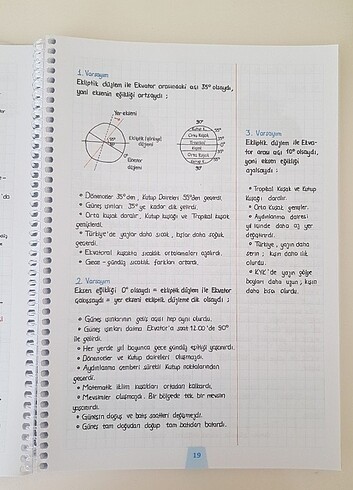 1. Varsayım
Ekliptik düzlem ile Ekvator arasındaki açı 35° olsaydı,
yani eksenin eğikliği artsaydı ;
Yer ekseni
Ekliptik (yörünge)
düzlemi
Ekvator
düzlemi
90°
Kutup K.
55°
Orta Kuşak
35°
Tropikal
0°
Kuşak
35°
Orta Kuşak
55°
Kutup K.
90°
• Dönenceler 35°den, Kutup Daireleri 55°den geçerdi.
• Güneş ışınları 35°ye kadar dik gelirdi.
• Orta kuşak daralır, Kutup kuşağı ve Tropikal kuşak
genişlerdi.
• Türkiye'de yazlar daha sıcak, kışlar daha soğuk
geçerdi.
• Ekvatoral kuşakta sıcaklık ortalamaları azalırdı.
• Gece - gündüz süreklilik farkları artardı.
2. Varsayım
Eksen eğikliği 0° olsaydı = ekliptik düzlem ile Ekvator
çakışsaydı = yer ekseni ekliptik düzleme dik olsaydı ;
• Güneş ışınlarının geliş açısı hep aynı olurdu.
• Güneş ışınları daima Ekvator'a saat 12.00'de 90°
ile gelirdi.
• Her yerde yıl boyunca gece gündüz eşitliği yaşanırdı.
• Dönenceler ve Kutup daireleri oluşmazdı.
• Aydınlanma çemberi sürekli Kutup noktalarından
geçerdi.
• Matematik iklim kuşakları ortadan kalkardı.
• Mevsimler oluşmazdı. Bir bölgede tek bir mevsim
yaşanırdı.
• Güneşin doğuş ve batış saatleri değişmezdi.
• Güneş tam doğudan doğup tam batıdan batardı.
3. Varsayım
Ekliptik düzlem ile Ekva-
tor arası açı 10° olsaydı,
yani eksen eğikliği
azalsaydı ;
• Tropikal Kuşak ve Kutup
Kuşağı daralır.
• Orta Kuşak genişler.
• Aydınlanma dairesi
yıl içinde daha az yer
değiştirirdi.
• Türkiye, yazın daha
serin ; kışın daha ılık
olurdu.
• KYK'de yazın gölge
boyları daha uzun ; kışın
daha kısa olurdu.
19